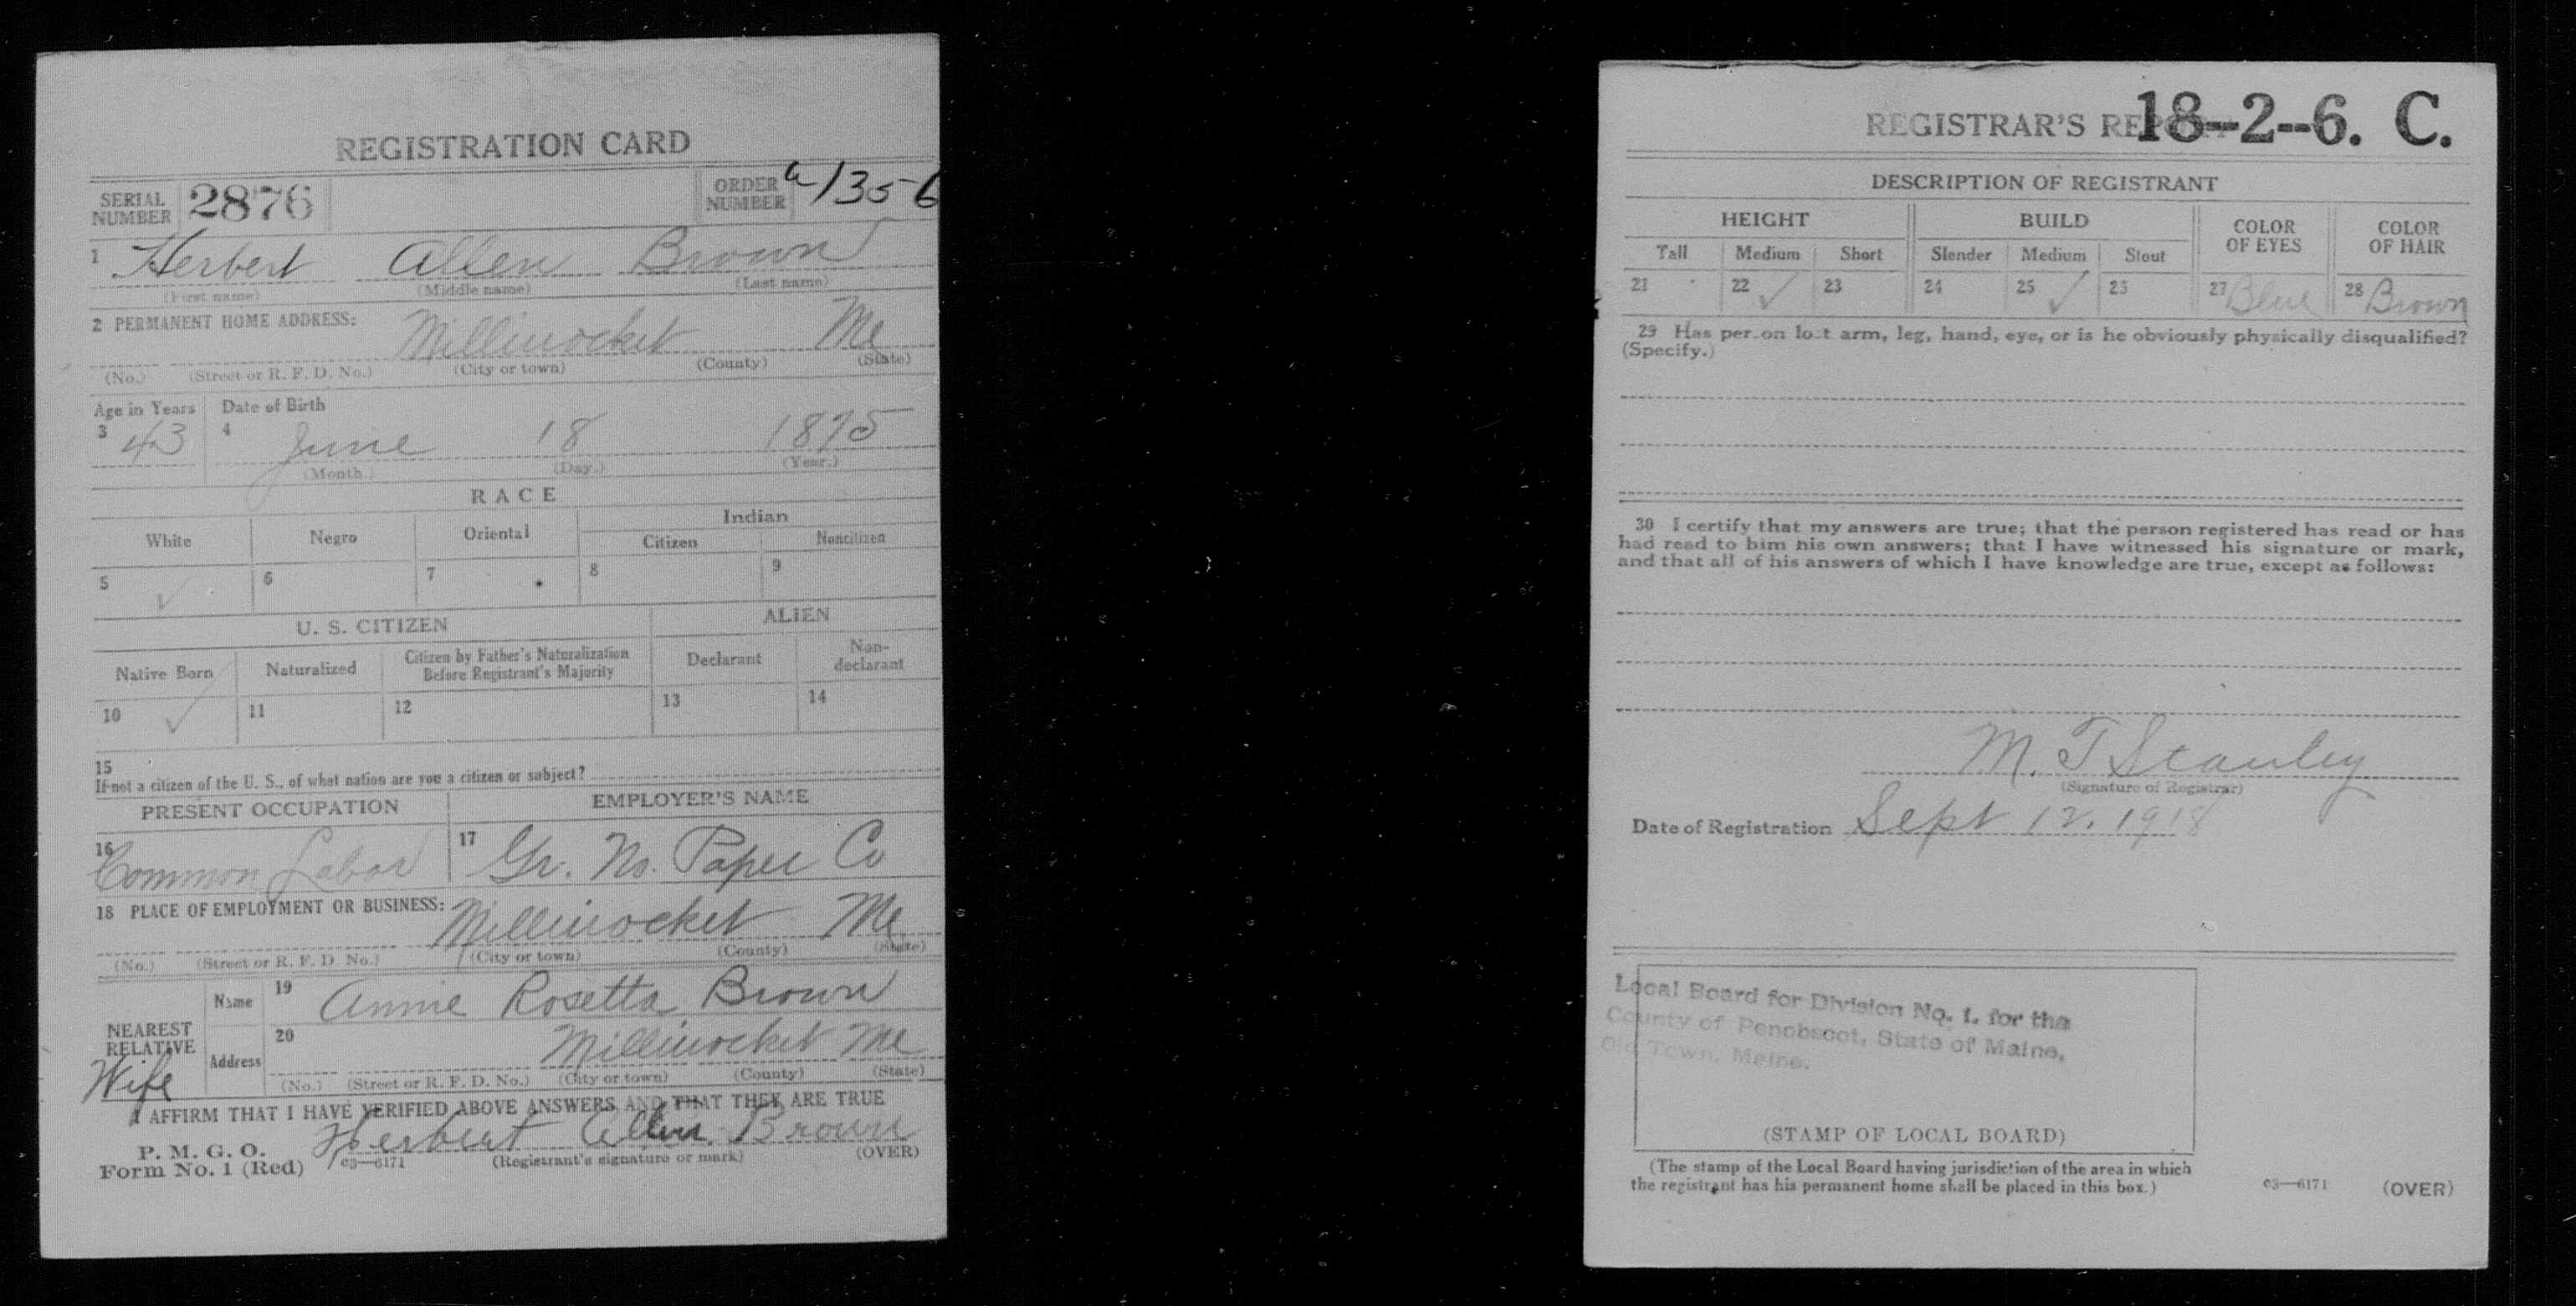 REGISTRATION CARD
SERIAL NUMBER 2876 ORDER NUMBER a1356
1 Herbert Allen Brown
(First name) (Middle name) (Last name)
2 PERMANENT HOME ADDRESS: Millinocket Me
(No.) (Street or R. F. D. No.) (City or town) (County) (State)
Age in Years Date of Birth
3 43 4 June 18 1875
(Month.) (Day.) (Year.)
RACE
White Negro Oriental Indian
Citizen Noncitizen
5 ✓ 6 7 8 9
U. S. CITIZEN ALIEN
Native Born Naturalized Citizen by Father's Naturalization Before Registrant's Majority Declarant Non-declarant
10 ✓ 11 12 13 14
15
If not a citizen of the U. S., of what nation are you a citizen or subject?
PRESENT OCCUPATION EMPLOYER'S NAME
16 Common Labor 17 Gr. No. Paper Co
18 PLACE OF EMPLOYMENT OR BUSINESS: Millinocket Me
(No.) (Street or R. F. D. No.) (City or town) (County) (State)
NEAREST RELATIVE Name 19 Annie Rosetta Brown
Wife Address 20 Millinocket Me
(No.) (Street or R. F. D. No.) (City or town) (County) (State)
I AFFIRM THAT I HAVE VERIFIED ABOVE ANSWERS AND THAT THEY ARE TRUE
P. M. G. O. Herbert Allen Brown
Form No. 1 (Red) 03—6171 (Registrant's signature or mark) (OVER)
REGISTRAR'S REPORT 18-2-6. C.
DESCRIPTION OF REGISTRANT
HEIGHT BUILD COLOR OF EYES COLOR OF HAIR
Tall Medium Short Slender Medium Stout
21 22 ✓ 23 24 25 ✓ 26 27 Blue 28 Brown
29 Has person lost arm, leg, hand, eye, or is he obviously physically disqualified?
(Specify.)
30 I certify that my answers are true; that the person registered has read or has
had read to him his own answers; that I have witnessed his signature or mark,
and that all of his answers of which I have knowledge are true, except as follows:
M. T Stanley
(Signature of Registrar)
Date of Registration Sept 12. 1918
Local Board for Division No. 1. for the
County of Penobscot, State of Maine,
Old Town, Maine.
(STAMP OF LOCAL BOARD)
(The stamp of the Local Board having jurisdiction of the area in which
the registrant has his permanent home shall be placed in this box.)
03—6171 (OVER)